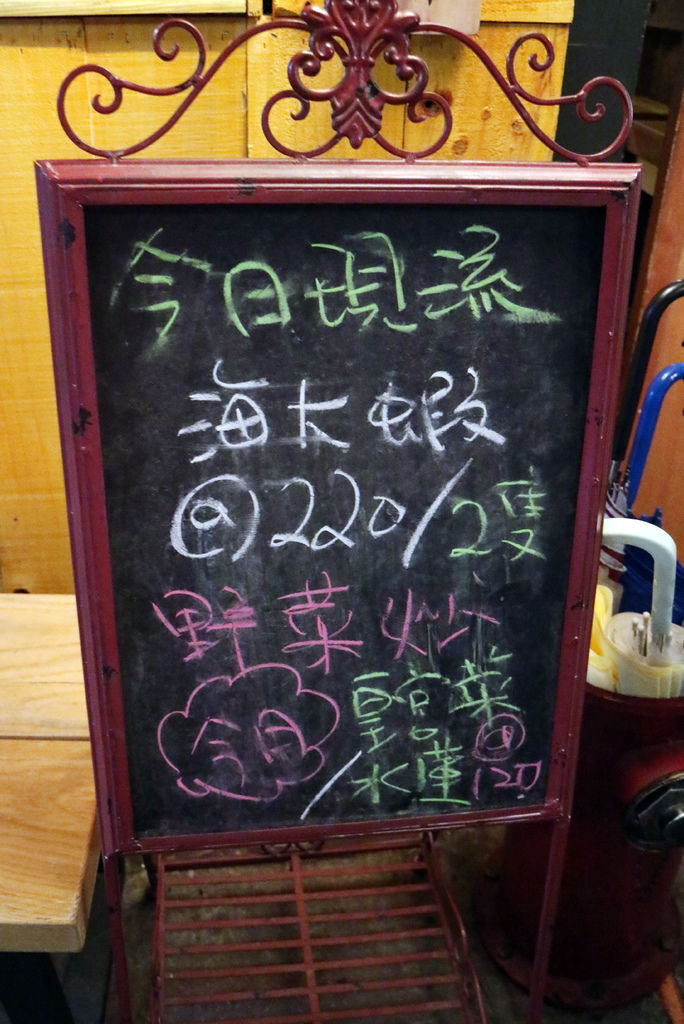 今日現流
海大蝦
@220/2隻
野菜炒
今日
/水蓮
菜
@
120